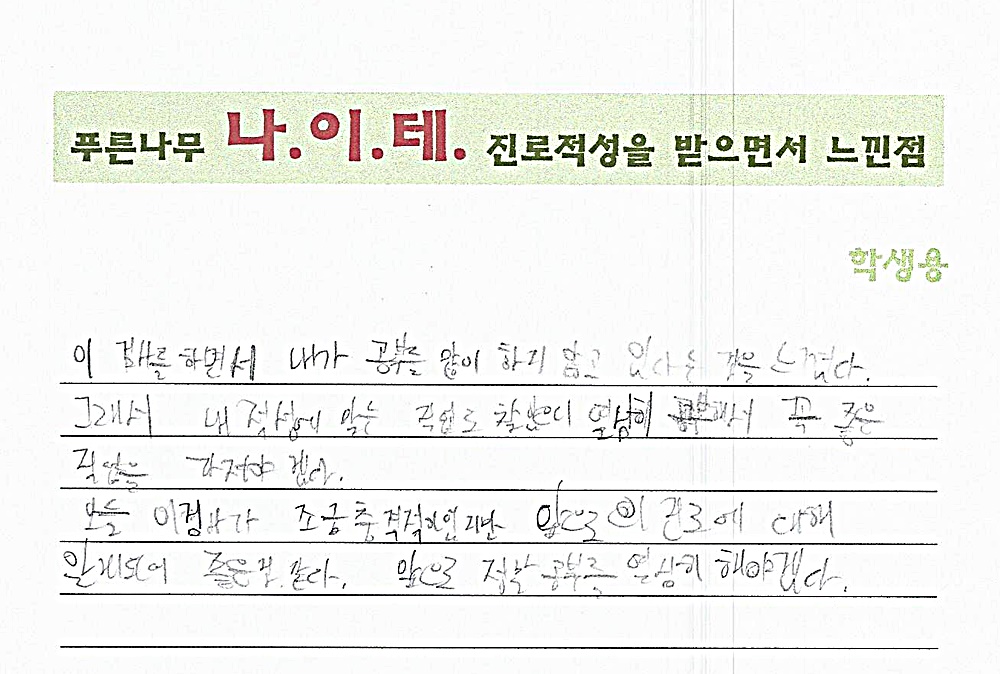 푸른나무 나.이.테. 진로적성을 받으면서 느낀점
학생용
이 검사를 하면서 내가 공부를 많이 하지 않고 있다는 것을 느꼈다.
그래서 내 적성에 맞는 직업도 찾았으니 열심히 공부해서 꼭 좋은
직업을 가져야 겠다.
오늘 이검사가 조금 충격적이었지만 앞으로의 진로에 대해
알게되어 좋은것 같다. 앞으로 정말 공부를 열심히 해야겠다.